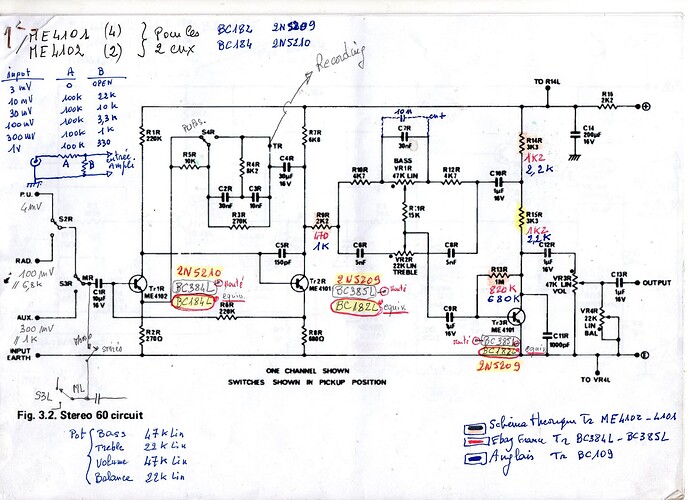 ME4101 (4) } Pour les BC182 2N5209
ME4102 (2) } 2 cnx BC184 2N5210
Recording
input A B
3 mV 0 OPEN
10 mV 100k 22k
30 mV 100k 10k
100 mV 100k 3,3k
300 mV 100k 1k
1V 100k 330
A B Entrée Ampli
P.U.
4mV
S2R
RAD.
100 mV
// 6,8k
S3R
MR
AUX.
300 mV
// 1K
INPUT
EARTH
C1R
10µF
16V
R1R
220K
Tr1R
ME4102
R2R
270Ω
PUBS.
S4R
R5R
10K
R4R
8K2
TR
C2R
30nF
C3R
10nF
R3R
270K
C4R
30µF
16V
R7R
6K8
C5R
150pF
2N5210
BC384L
BC184L
equiv.
R6R
220K
Tr2R
ME4101
R8R
680Ω
R9R
2K2
470
1K
R10R
4K7
C7R
30nF
BASS
VR1R
47K LIN
R12R
4K7
C10R
1µF
16V
R11R
15K
C6R
5nF
VR2R
22K LIN
TREBLE
C8R
5nF
2N5209
BC385L
BC182L
equiv.
C9R
1µF
16V
TO R14L
R16
2K2
C14
200µF
16V
R14R
3K3
1K2
2,2K
R15R
3K3
1K2
2,2K
C12R
1µF
16V
R13R
1M
820K
680K
Tr3R
ME4101
BC385L
BC182L
equiv.
2N5209
C11R
1000pF
VR3R
47K LIN
VOL
VR4R
22K
LIN
BAL
C13R
1µF
16V
OUTPUT
TO VR4L
mono
stéréo
S3L
ML
ONE CHANNEL SHOWN
SWITCHES SHOWN IN PICKUP POSITION
Fig. 3.2. Stereo 60 circuit
Pot { Bass 47k Lin
Treble 22k Lin
Volume 47k Lin
Balance 22k Lin
Schéma théorique Tr ME4102-4101
Ebay France Tr BC384L-BC385L
Anglais Tr BC109